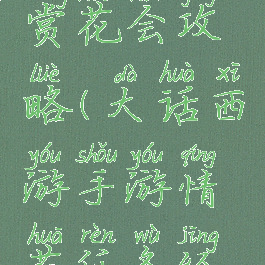 赏花会攻
lüè dà huà xī
略(大话西
yóu shǒu yóu qíng
游手游情
huā rèn wù jīng